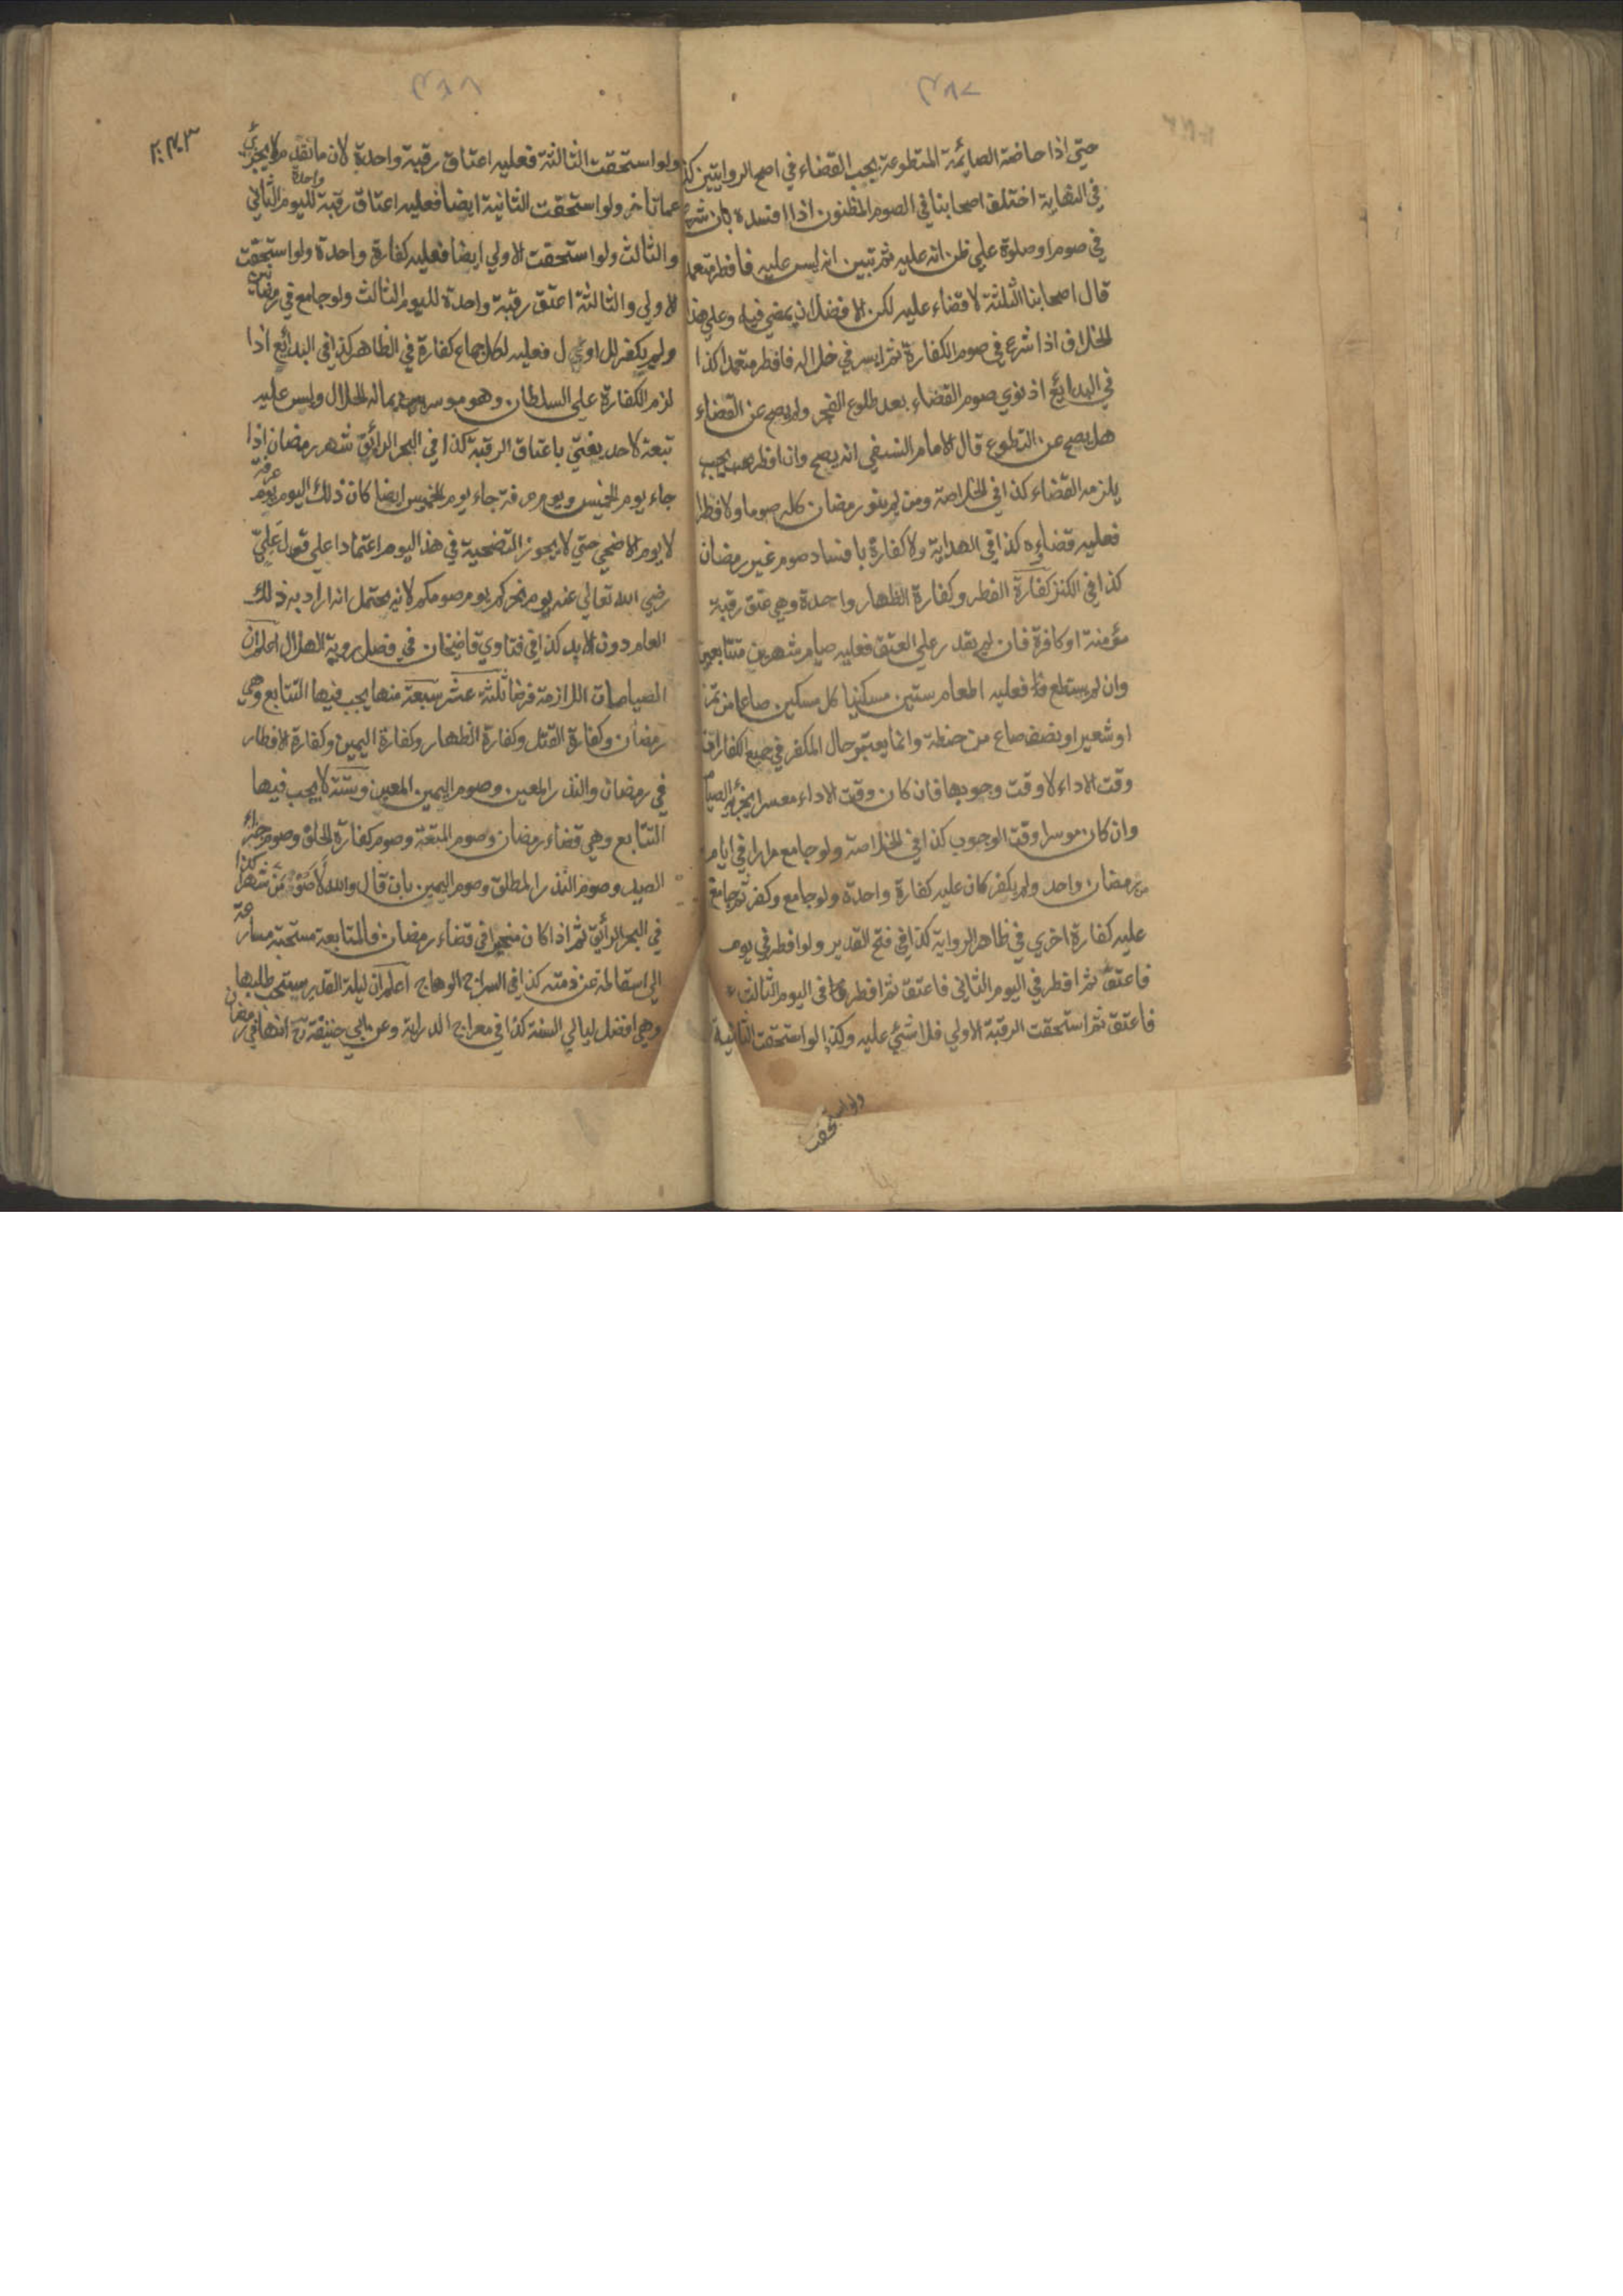 ٣٨٧
حتى اذا حاضة الصايمة المتطوعة يجب القضاء في اصح الروايتين كذا
في النهاية اختلف اصحابنا في الصوم المظنون اذا افسده بان شرع
في صوم او صلوة علي ظن انه عليه ثم تبين انه ليس عليه فافطر متعمدا
قال اصحابنا الثلثة لا قضاء عليه لكن الافضل ان يمضي فيه وعلي هذا
الخلاف اذا شرع في صوم الكفارة ثم ايسر في خلاله فافطر متعمدا كذا
في البدائع اذ نوي صوم القضاء بعد طلوع الفجر ولم يصح عن القضاء
هل يصح عن التطوع قال الامام النسفي انه يصح وان افطر يجب
يلزمه القضاء كذا في الخلاصة ومن لم ينو رمضان كله صوما ولا فطرا
فعليه قضاءه كذا في الهداية ولا كفارة بافساد صوم غير رمضان
كذا في الكنز كفارة الفطر وكفارة الظهار واحدة وهي عتق رقبة
مؤمنة او كافرة فان لم يقدر علي العتق فعليه صيام شهرين متتابعين
وان لم يستطع فعليه اطعام ستين مسكينا كل مسكين صاعا من تمر
او شعير او نصف صاع من حنطة وانما يعتبر حال المكفر في جميع الكفارات
وقت الاداء لا وقت وجوبها فان كان وقت الاداء معسرا يجزئه الصيام
وان كان موسرا وقت الوجوب كذا في الخلاصة ولو جامع مرارا في ايام
من رمضان واحد ولم يكفر كان عليه كفارة واحدة ولو جامع وكفر ثم جامع
عليه كفارة اخري في ظاهر الرواية كذا في فتح القدير ولو افطر في يوم
فاعتق ثم افطر في اليوم الثاني فاعتق ثم افطر في اليوم الثالث
فاعتق ثم استحقت الرقبة الاولي فلا شئ عليه وكذا لو استحقت الثانية
ولو استحقت
٣٨٨
ولو استحقت الثالثة فعليه اعتاق رقبة واحدة لان ما تقدم لا يجزئ
عما تأخر ولو استحقت الثانية ايضا فعليه اعتاق رقبة واحدة لليوم الثاني
والثالث ولو استحقت الاولي ايضا فعليه كفارة واحدة ولو استحقت
الاولي والثالثة اعتق رقبة واحدة لليوم الثالث ولو جامع في رمضانين
ولم يكفر للاول فعليه لكل جماع كفارة في الظاهر كذا في البدائع اذا
لزم الكفارة علي السلطان وهو موسر بماله الحلال وليس عليه
تبعة لاحد يفتي باعتاق الرقبة كذا في البحر الرائق شهر رمضان اذا
جاء يوم الخميس ويوم عرفة جاء يوم الخميس ايضا كان ذلك اليوم يوم عرفة
لا يوم الاضحي حتي لا يجوز التضحية في هذا اليوم اعتمادا علي قول علي
رضي الله تعالي عنه يوم نحركم يوم صومكم لانه يحتمل انه اراد به ذلك
العام دون الابد كذا في فتاوي قاضيخان في فصل روية الهلال اعلم ان
الصيامات اللازمة فرضا ثلثة عشر سبعة منها يجب فيها التتابع وهي
رمضان وكفارة القتل وكفارة الظهار وكفارة اليمين وكفارة الافطار
في رمضان والنذر المعين وصوم اليمين المعين وستة لا يجب فيها
التتابع وهي قضاء رمضان وصوم المتعة وصوم كفارة الحلق وصوم جزاء
الصيد وصوم النذر المطلق وصوم اليمين بان قال والله لاصومن شهرا كذا
في البحر الرائق ثم اذا كان مخيرا في قضاء رمضان فالمتابعة مستحبة مسارعة
الي اسقاطه عن ذمته كذا في السراج الوهاج اعلم ان ليلة القدر يستحب طلبها
وهي افضل ليالي السنة كذا في معراج الدراية وعن ابي حنيفة رح انها في رمضان